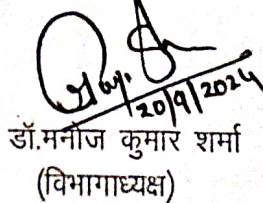 20/9/2024
डॉ.मनोज कुमार शर्मा
(विभागाध्यक्ष)